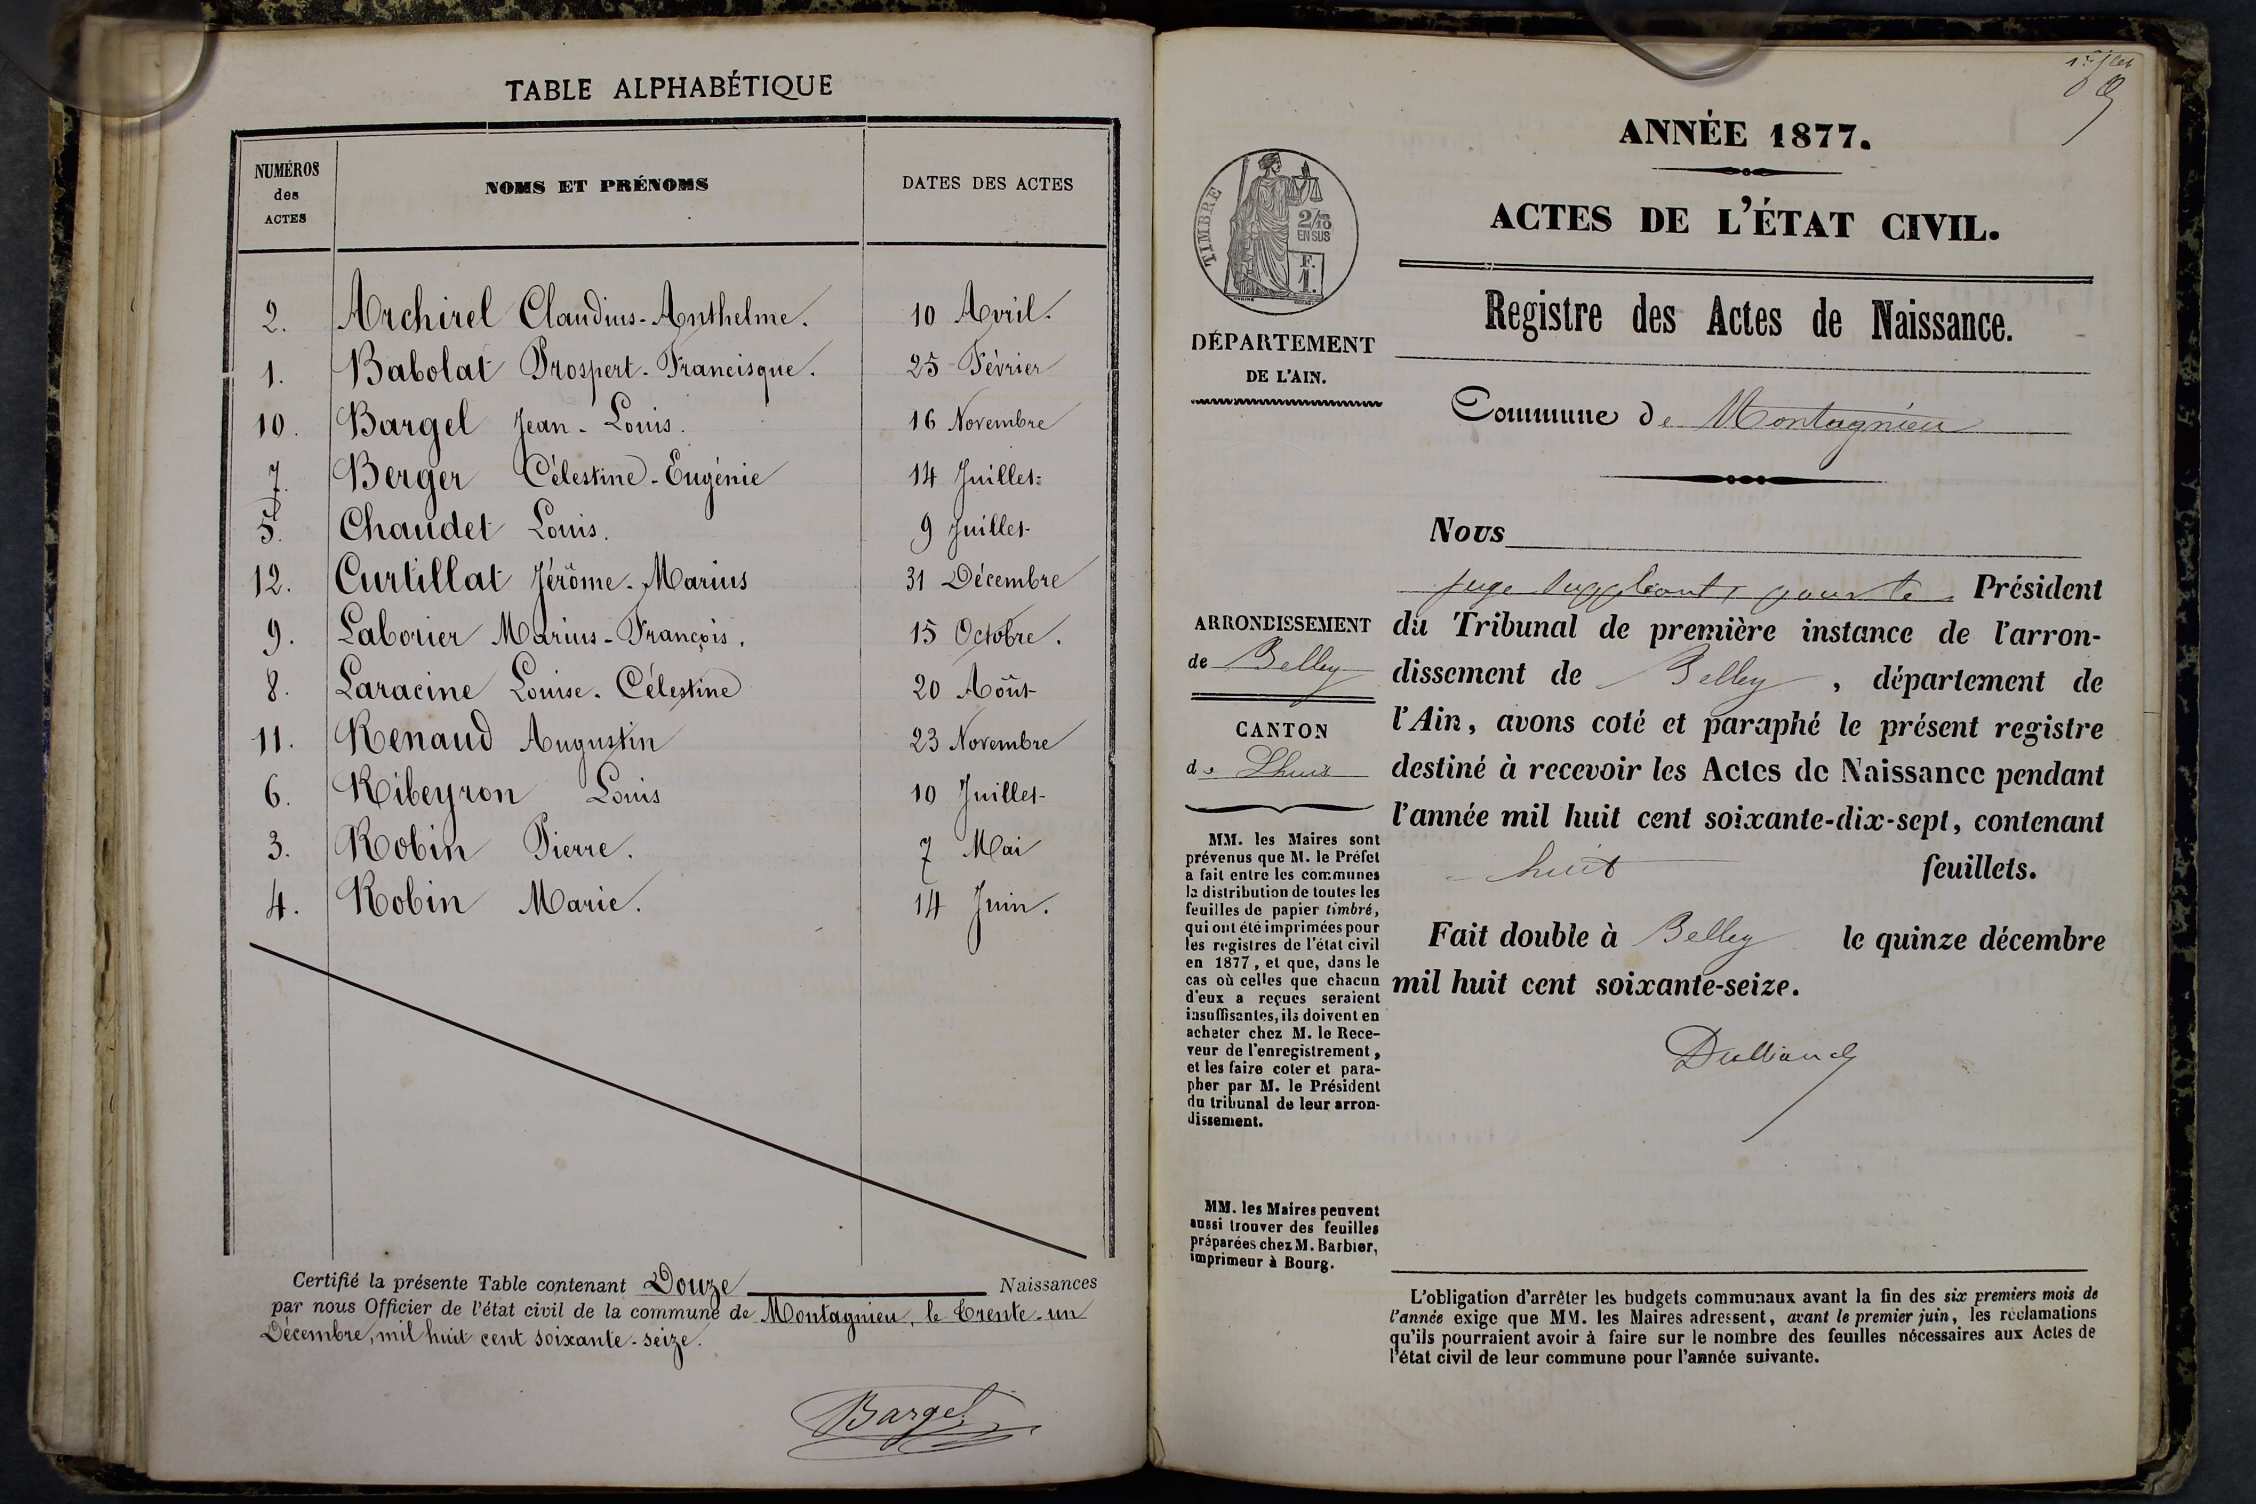 TABLE ALPHABÉTIQUE
NUMÉROS
des
ACTES
NOMS ET PRÉNOMS
DATES DES ACTES
2. Archirel Claudius-Anthelme. 10 Avril.
1. Babolat Prospert-Francisque. 25 Février
10. Bargel Jean-Louis. 16 Novembre
7. Berger Célestine-Eugénie 14 Juillet
5. Chaudet Louis. 9 Juillet
12. Curtillat Jérôme-Marius 31 Décembre
9. Laborier Marius-François. 15 Octobre.
8. Laracine Louise-Célestine 20 Août
11. Renaud Augustin 23 Novembre
6. Ribeyron Louis 10 Juillet
3. Robin Pierre. 7 Mai
4. Robin Marie. 14 Juin.
Certifié la présente Table contenant Douze Naissances
par nous Officier de l'état civil de la commune de Montagnieu, le Trente-un
Décembre, mil huit cent soixante-seize.
Bargel
ANNÉE 1877.
ACTES DE L'ÉTAT CIVIL.
TIMBRE
2/10
EN SUS
F.
1.
DÉPARTEMENT
DE L'AIN.
Registre des Actes de Naissance.
Commune de Montagnieu
Nous
juge suppléant, pour le Président
du Tribunal de première instance de l'arron-
dissement de Belley, département de
l'Ain, avons coté et paraphé le présent registre
destiné à recevoir les Actes de Naissance pendant
l'année mil huit cent soixante-dix-sept, contenant
huit feuillets.
Fait double à Belley le quinze décembre
mil huit cent soixante-seize.
ARRONDISSEMENT
de Belley
CANTON
de Lhuis
MM. les Maires sont
prévenus que M. le Préfet
a fait entre les communes
la distribution de toutes les
feuilles de papier timbré,
qui ont été imprimées pour
les registres de l'état civil
en 1877, et que, dans le
cas où celles que chacun
d'eux a reçues seraient
insuffisantes, ils doivent en
acheter chez M. le Rece-
veur de l'enregistrement,
et les faire coter et para-
pher par M. le Président
du tribunal de leur arron-
dissement.
MM. les Maires peuvent
aussi trouver des feuilles
préparées chez M. Barbier,
imprimeur à Bourg.
L'obligation d'arrêter les budgets communaux avant la fin des six premiers mois de
l'année exige que MM. les Maires adressent, avant le premier juin, les réclamations
qu'ils pourraient avoir à faire sur le nombre des feuilles nécessaires aux Actes de
l'état civil de leur commune pour l'année suivante.